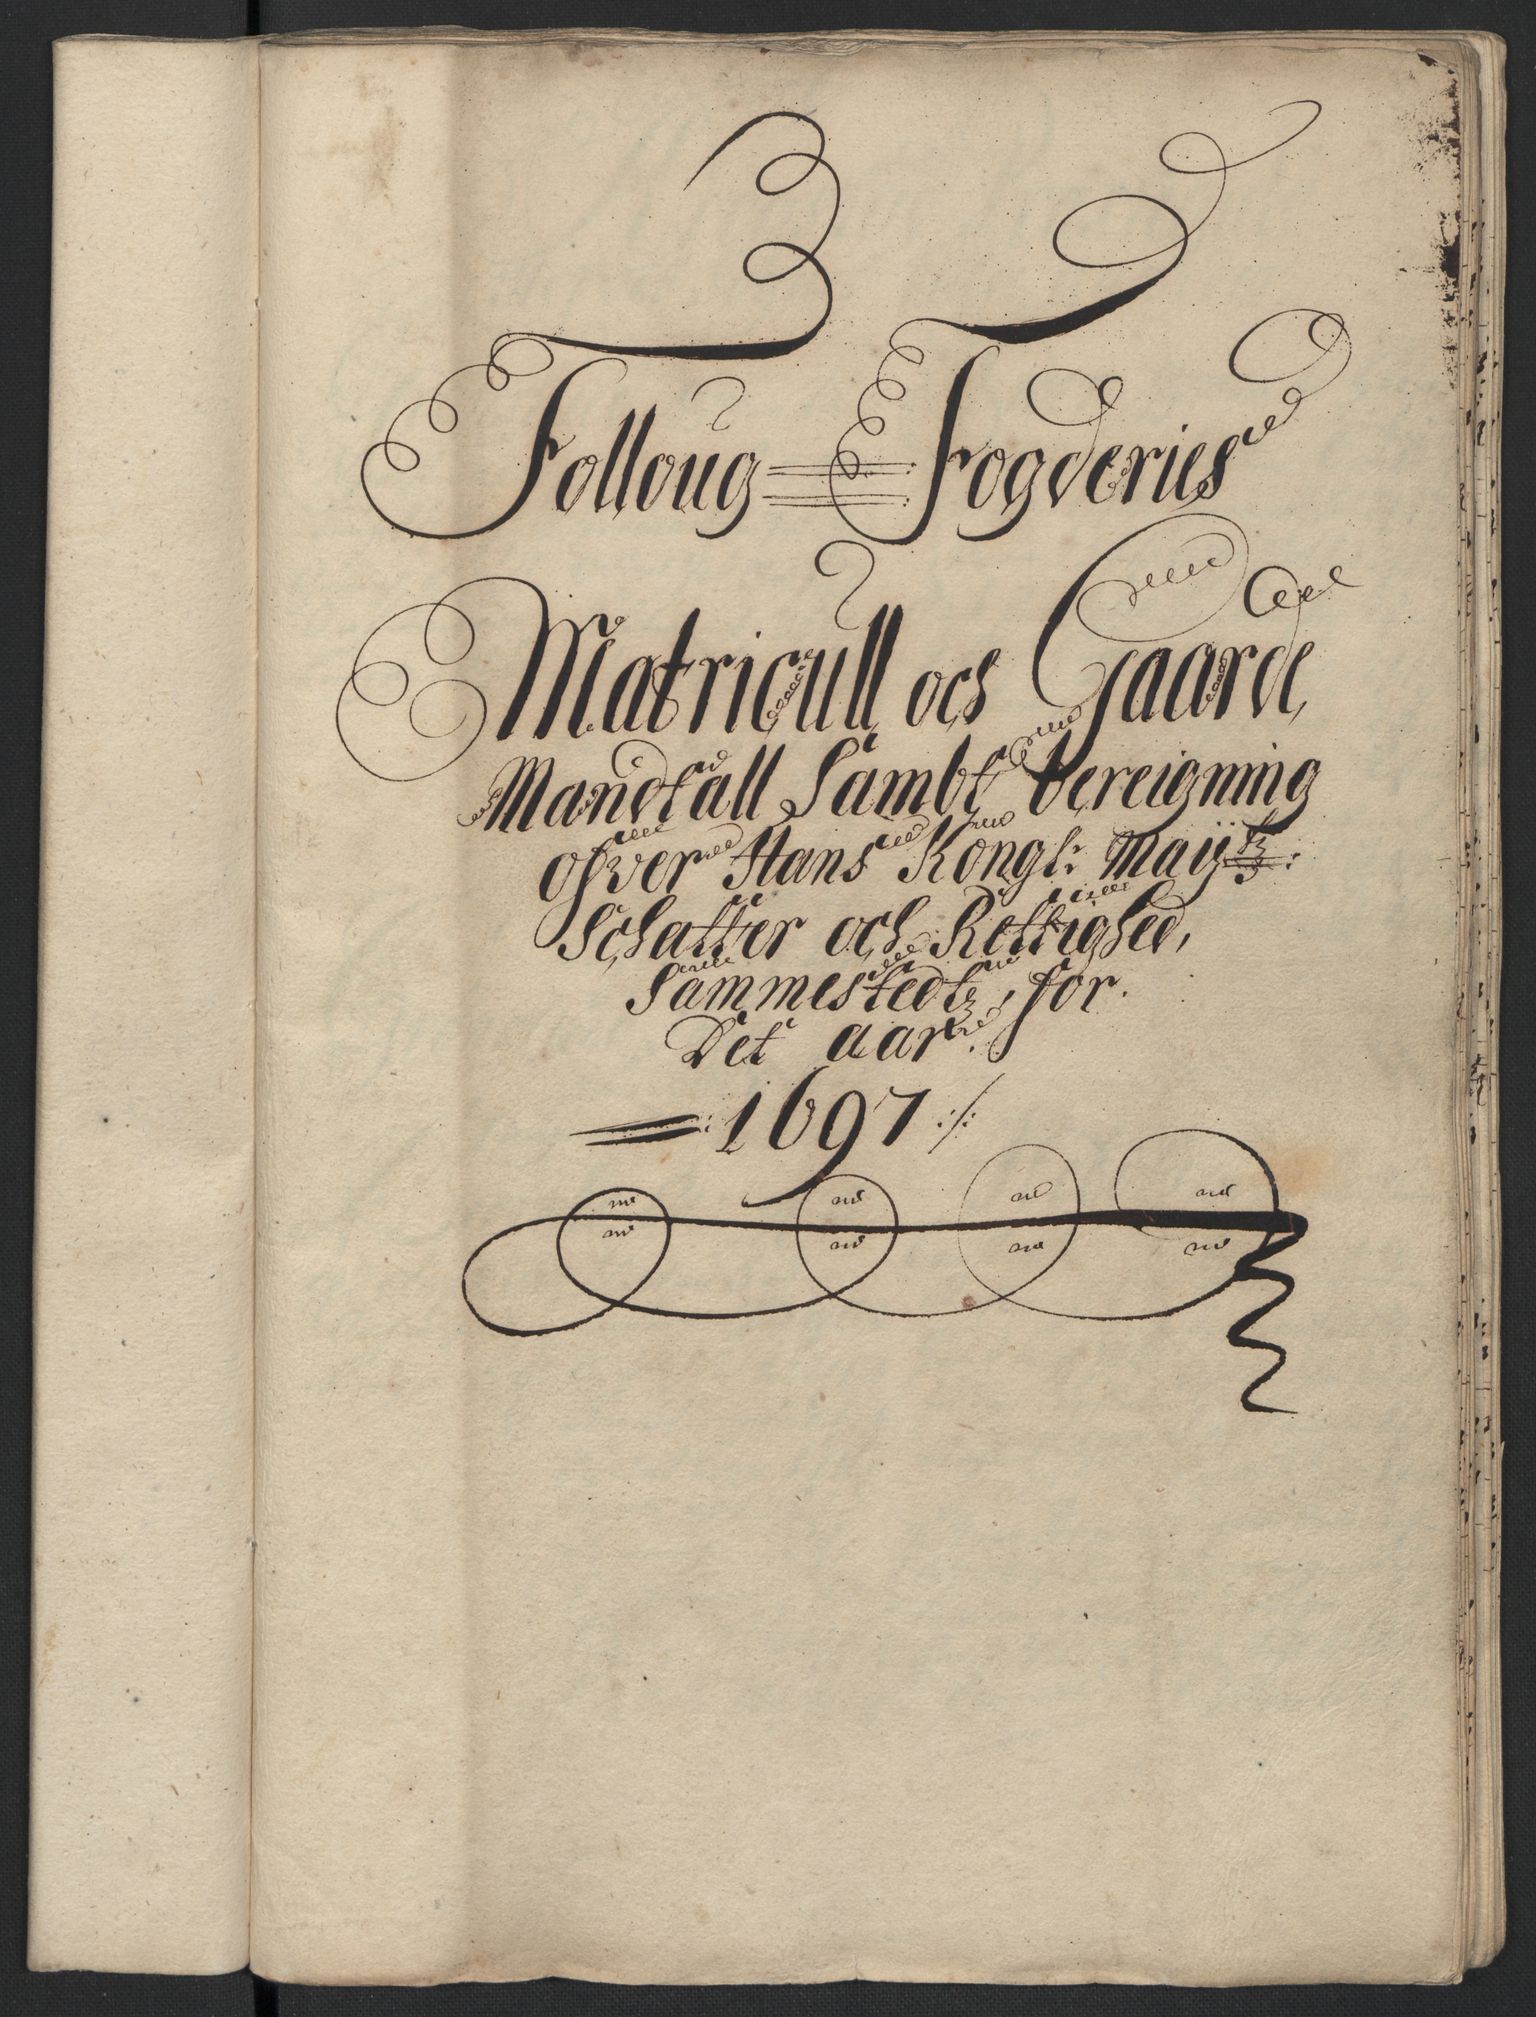 Folloug = Fogderies
Matricull och Gaarde
Mandtall Sambt bereigning
ofver Hans Kongl: Mayttz:
Schatter och Rettighed,
Sammestedtz, for.
Det aar.
1697 ./.